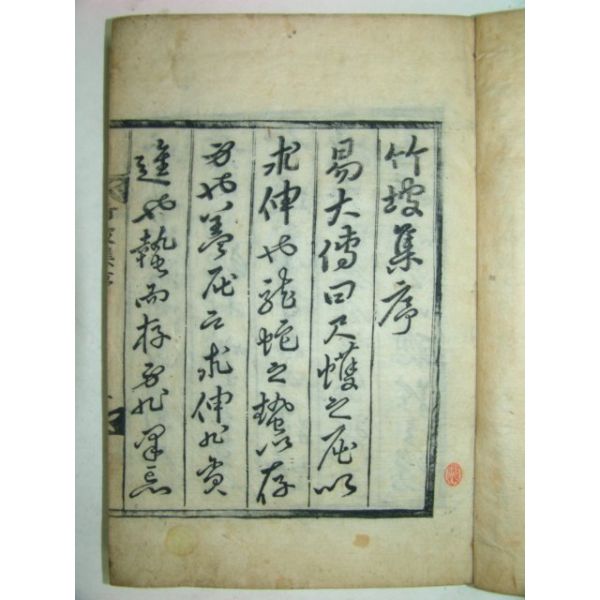 竹坡集序
易大傳曰尺蠖之屈以
求伸也龍蛇之蟄以存
身也蓋屈而求伸非貪
進也蟄而存身非果忘